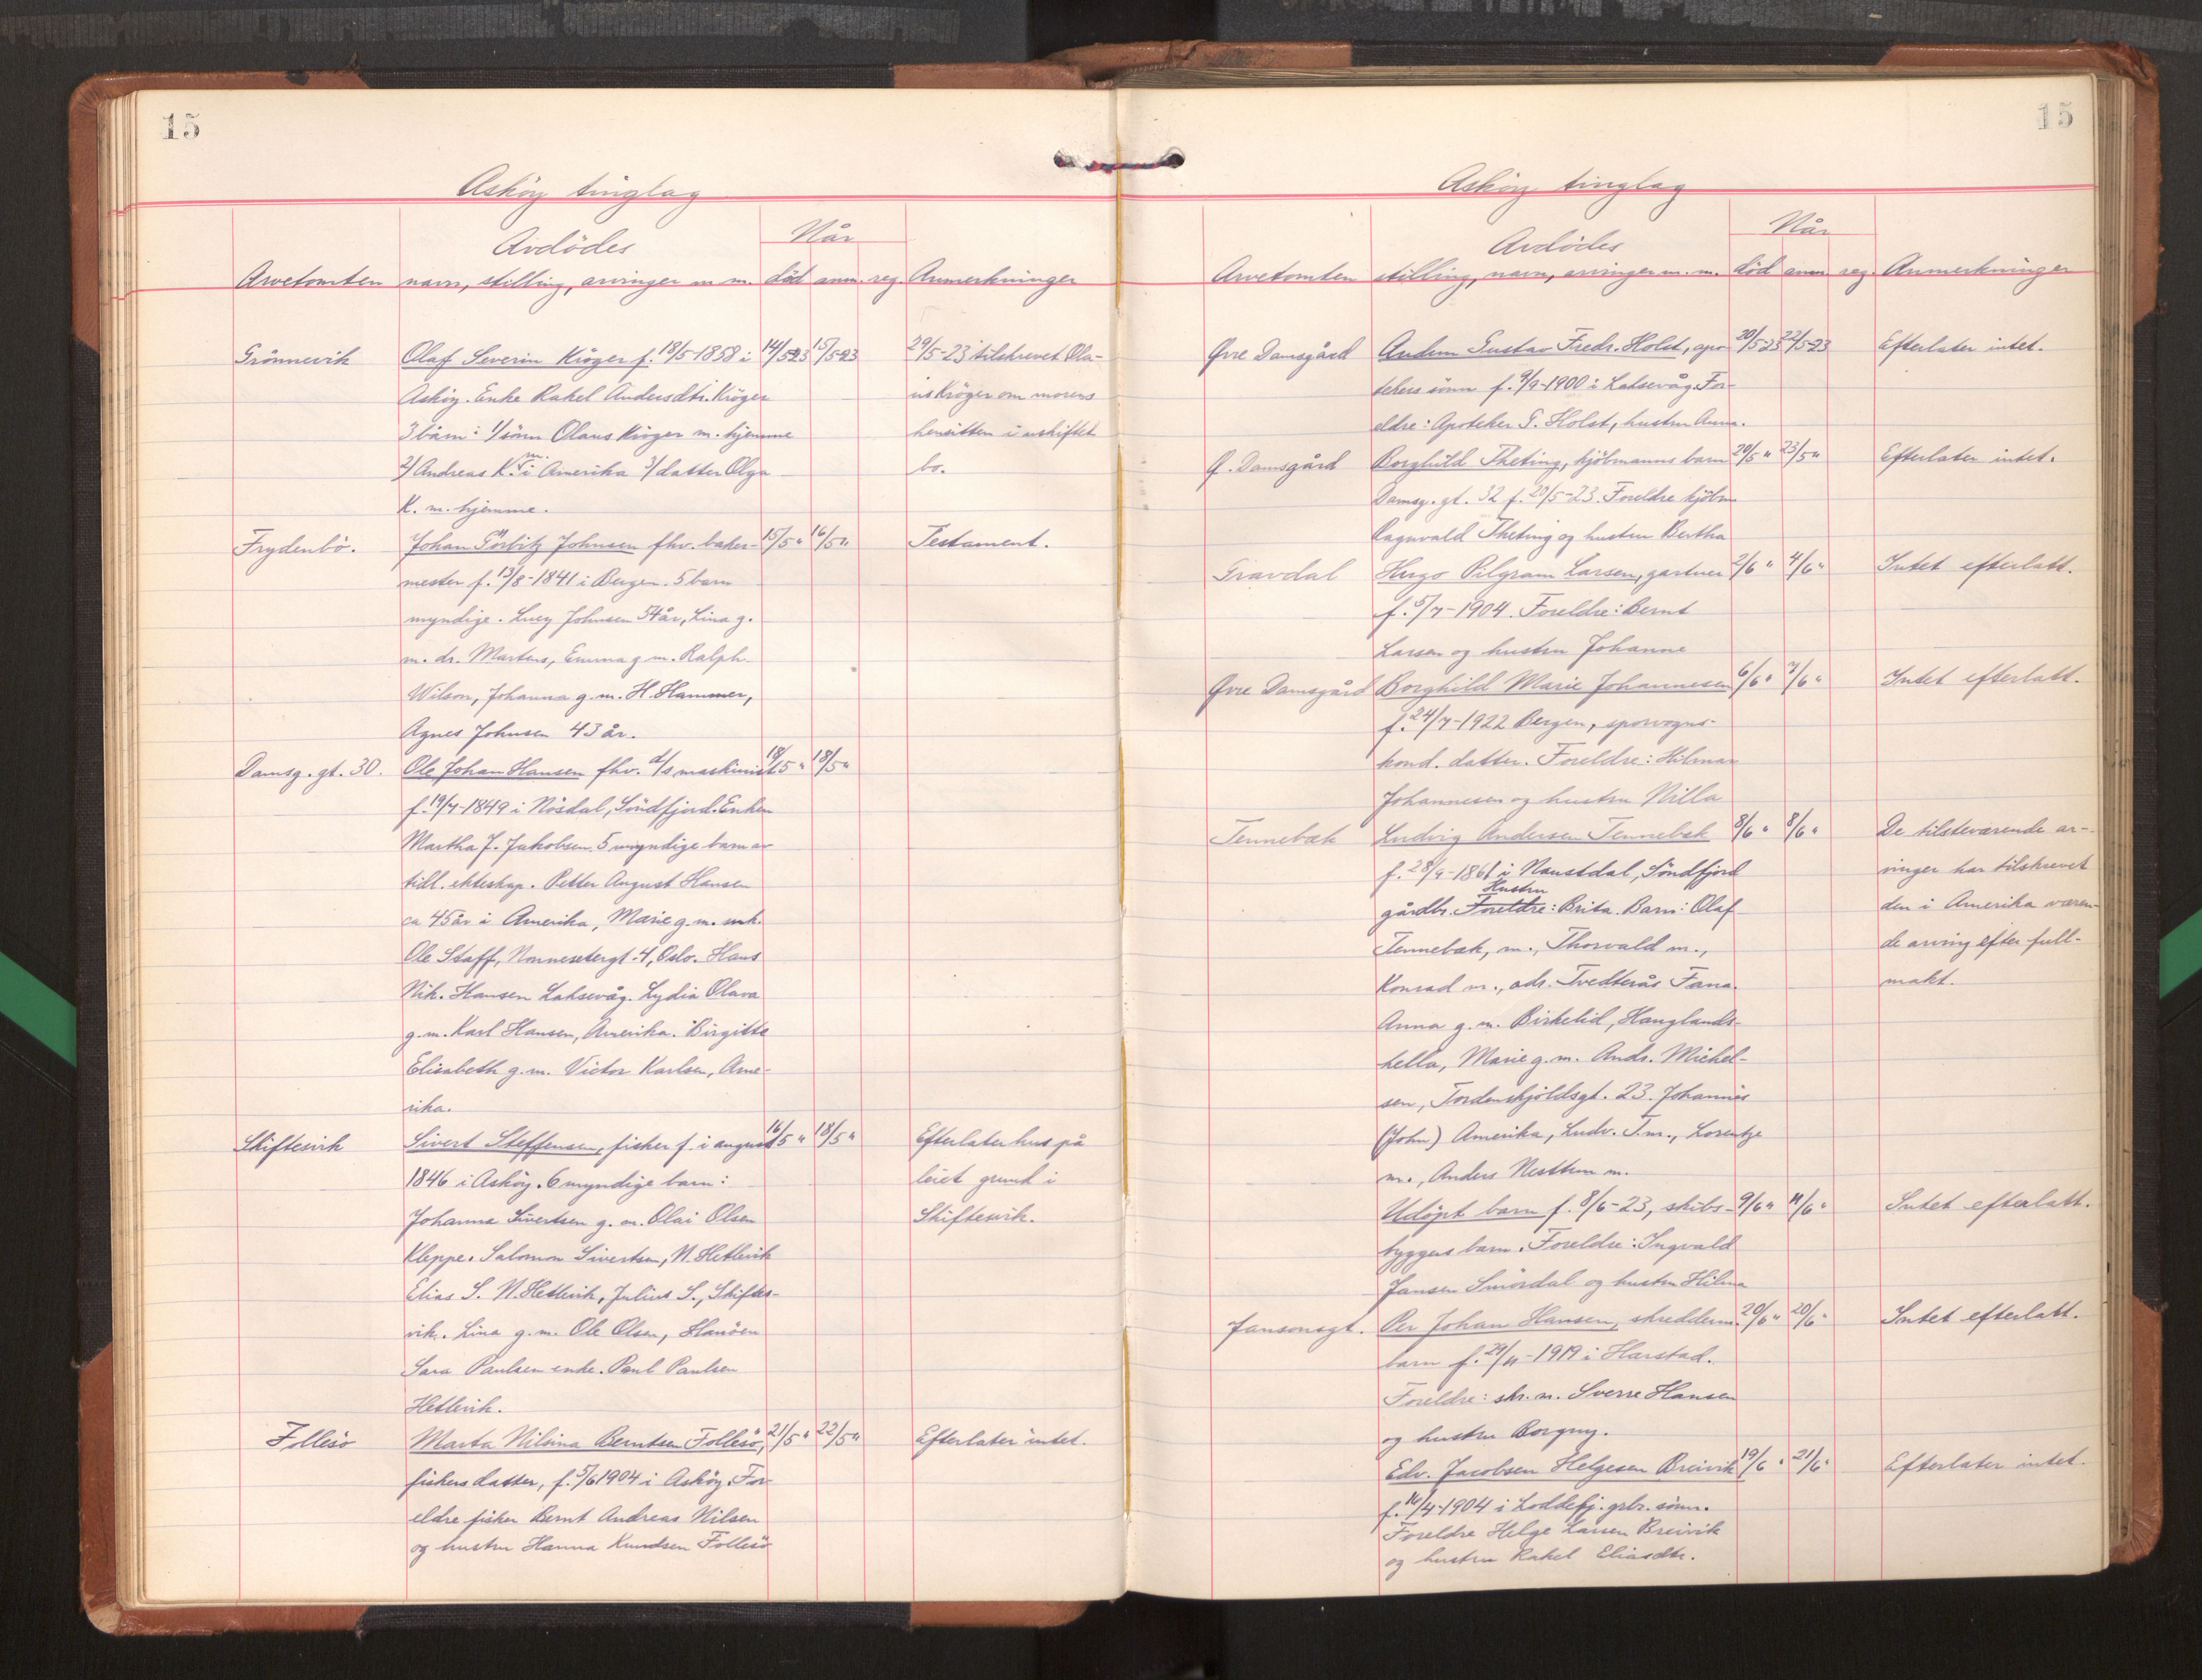 15
Asköy tinglag
Når
Avdödes
Arvetomten navn, stilling, arvinger m m. död anm. reg. Anmerkninger
Grönnevik Olaf Severin Kröger f. 18/5-1858 i 14/5-23 15/5-23 29/5-23 tilskrevet Ola-
Asköy. Enke Rakel Andersdtr. Kröger us Kröger om morens
3 barn: 1/ sönn Olaus Kröger m. hjemme hensitten i uskiftet
2/ Andreas K. m. i Amerika 3/ datter Olga bo.
K. m. hjemme.
Frydenbö. Johan Görbitz Johnsen fhv. baker- 15/5 " 16/5 " Testament.
mester f. 13/8-1841 i Bergen. 5 barn
myndige. Lucy Johnsen 54 år, Lina g.
m. dr. Martens, Emma g m. Ralph
Wilson, Johanna g. m. H. Hammer,
Agnes Johnsen 43 år.
Damsg. gt. 30. Ole Johan Hansen fhv. d/s maskinist 18/5 " 18/5 "
f. 19/7-1849 i Nösdal, Söndfjord. Enken
Martha J. Jakobsen. 5 myndige barn av
tidl. ekteskap. Petter August Hansen
ca 45 år i Amerika, Marie g. m. snk.
Ole Staff, Nonnesetergt. 4, Oslo. Hans
Nik. Hansen Laksevåg. Lydia Olava
g. m. Karl Hansen, Amerika. Birgitte
Elisabeth g. m. Victor Karlsen, Ame-
rika.
Skiftesvik Sivert Steffensen, fisker f. i august 16/5 " 18/5 " Efterlater hus på
1846 i Asköy. 6 myndige barn: leiet grund i
Johanna Sivertsen g. m. Olai Olsen Skiftesvik.
Kleppe. Salomon Sivertsen, N. Hetlevik
Elias S. N. Hetlevik, Julius S., Skiftes-
vik. Lina g. m. Ole Olsen, Hanöen
Sara Paulsen enke. Paul Paulsen
Hetlevik.
Follesö Marta Nilsina Berntsen Follesö, 21/5 " 22/5 " Efterlater intet.
fiskers datter, f. 5/6 1904 i Asköy. For-
eldre fisker Bernt Andreas Nilsen
og hustru Hanna Knudsen Follesö
15
Asköy tinglag
Når
Avdödes
Arvetomten stilling, navn, arvinger m. m. död anm. reg. Anmerkninger
Øvre Damsgård Anton Gustav Fredr. Holst, apo- 20/5-23 22/5-23 Efterlater intet.
tekers sönn f. 9/9-1900 i Laksevåg. For-
eldre: Apoteker G. Holst, hustru Anna.
Ø. Damsgård Borghild Theting, kjöbmanns barn 20/5 " 23/5 " Efterlater intet.
Damsg. gt. 32 f. 20/5-23. Foreldre kjöbm
Ragnvald Theting og hustru Bertha
Gravdal Hugo Pilgram Larsen, gartner 2/6 " 4/6 " Intet efterlatt.
f. 5/7-1904. Foreldre: Bernt
Larsen og hustru Johanne
Øvre Damsgård Borghild Marie Johannesen 6/6 " 7/6 " Intet efterlatt.
f. 24/7-1922 Bergen, sporvogns-
kond. datter. Foreldre: Hilmar
Johannesen og hustru Nilla
Tennebæk Ludvig Andersen Tennebæk 8/6 " 8/6 " De tilsteværende ar-
f. 28/9-1861 i Naustdal, Söndfjord vinger har tilskrevet
Hustru
gårdbr. Foreldre: Brita. Barn: Olaf den i Amerika væren-
Tennebæk, m., Thorvald m., de arving efter full-
Konrad m., adr. Tvedterås Fana. makt.
Anna g. m. Birkelid, Hauglands-
hella, Marie g. m. Andr. Michel-
sen, Tordenskjöldsgt. 23. Johannes
(John) Amerika, Ludv. T. m., Lorentze
m., Anders Nesttun m.
Udöpt barn f. 8/6-23, skibs- 9/6 " 11/6 " Intet efterlatt.
byggers barn. Foreldre: Ingvald
Jansen Smördal og hustru Hilma
Jansonsgt. Per Johan Hansen, skredderm. 20/6 " 20/6 " Intet efterlatt.
barn f. 29/11-1919 i Harstad.
Foreldre: skr. m. Sverre Hansen
og hustru Borgny.
Edv. Jacobsen Helgesen Breivik 19/6 " 21/6 " Efterlater intet.
f. 16/4-1904 i Loddefj. grbr. sönn.
Foreldre Helge Larsen Breivik
og hustru Rakel Eliasdtr.